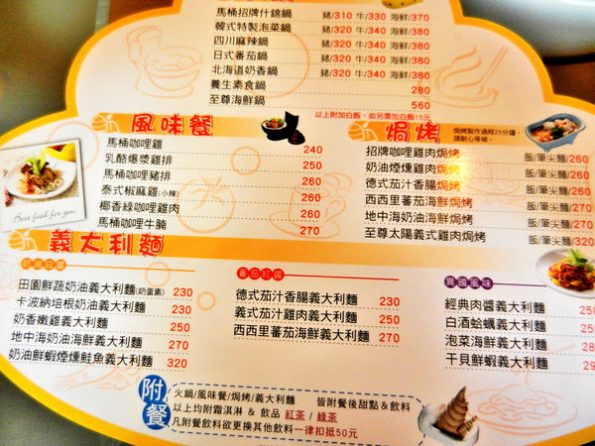 馬桶招牌什錦鍋 豬/310 牛/330 海鮮/370
韓式特製泡菜鍋 豬/320 牛/340 海鮮/380
四川麻辣鍋 豬/320 牛/340 海鮮/380
日式番茄鍋 豬/320 牛/340 海鮮/380
北海道奶香鍋 豬/320 牛/340 海鮮/380
養生素食鍋 280
至尊海鮮鍋 560
以上附加白飯，如另需加白飯15元
風味餐
馬桶咖哩雞 240
乳酪爆漿雞排 250
馬桶咖哩豬排 250
泰式椒麻雞(小辣) 260
椰香綠咖哩雞肉 260
馬桶咖哩牛腩 270
Best food for you
焗烤
焗烤製作過程25分鐘，
請耐心等候。
招牌咖哩雞肉焗烤 飯/筆尖麵/260
奶油煙燻雞肉焗烤 飯/筆尖麵/260
德式茄汁香腸焗烤 飯/筆尖麵/260
西西里蕃茄海鮮焗烤 飯/筆尖麵/270
地中海奶油海鮮焗烤 飯/筆尖麵/270
至尊太陽義式雞肉焗烤 飯/筆尖麵/320
義大利麵
奶油白醬
田園鮮蔬奶油義大利麵(奶蛋素) 230
卡波納培根奶油義大利麵 230
奶香嫩雞義大利麵 250
地中海奶油海鮮義大利麵 270
奶油鮮蝦煙燻鮭魚義大利麵 320
番茄紅醬
德式茄汁香腸義大利麵 230
義式茄汁雞肉義大利麵 250
西西里蕃茄海鮮義大利麵 270
異國風味
經典肉醬義大利麵
白酒蛤蠣義大利麵
泡菜海鮮義大利麵
干貝鮮蝦義大利麵
附餐
火鍋/風味餐/焗烤/義大利麵 皆附餐後甜點&飲料
以上均附霜淇淋 & 飲品 紅茶 / 綠茶
凡附餐飲料欲更換其他飲料 一律扣抵50元